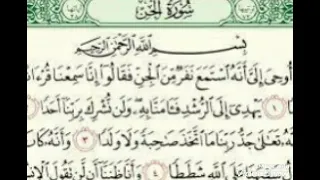 سُورَةُ الْجِنِّ
بِسْمِ اللَّهِ الرَّحْمَٰنِ الرَّحِيمِ
أُوحِيَ إِلَيَّ أَنَّهُ اسْتَمَعَ نَفَرٌ مِّنَ الْجِنِّ فَقَالُوا إِنَّا سَمِعْنَا قُرْءَانًا
١ يَهْدِي إِلَى الرُّشْدِ فَـَٔامَنَّا بِهِ وَلَن نُّشْرِكَ بِرَبِّنَا أَحَدًا
تَعَالَىٰ جَدُّ رَبِّنَا مَا اتَّخَذَ صَاحِبَةً وَلَا وَلَدًا ٣ وَأَنَّهُ كَانَ
عَلَى اللَّهِ شَطَطًا ٤ وَأَنَّا ظَنَنَّا أَن لَّن تَقُولَ الْإِنسُ